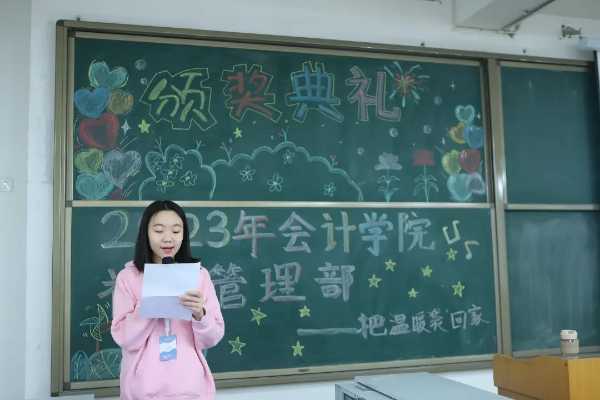 颁奖典礼
2023年会计学院
管理部
——把温暖装回家